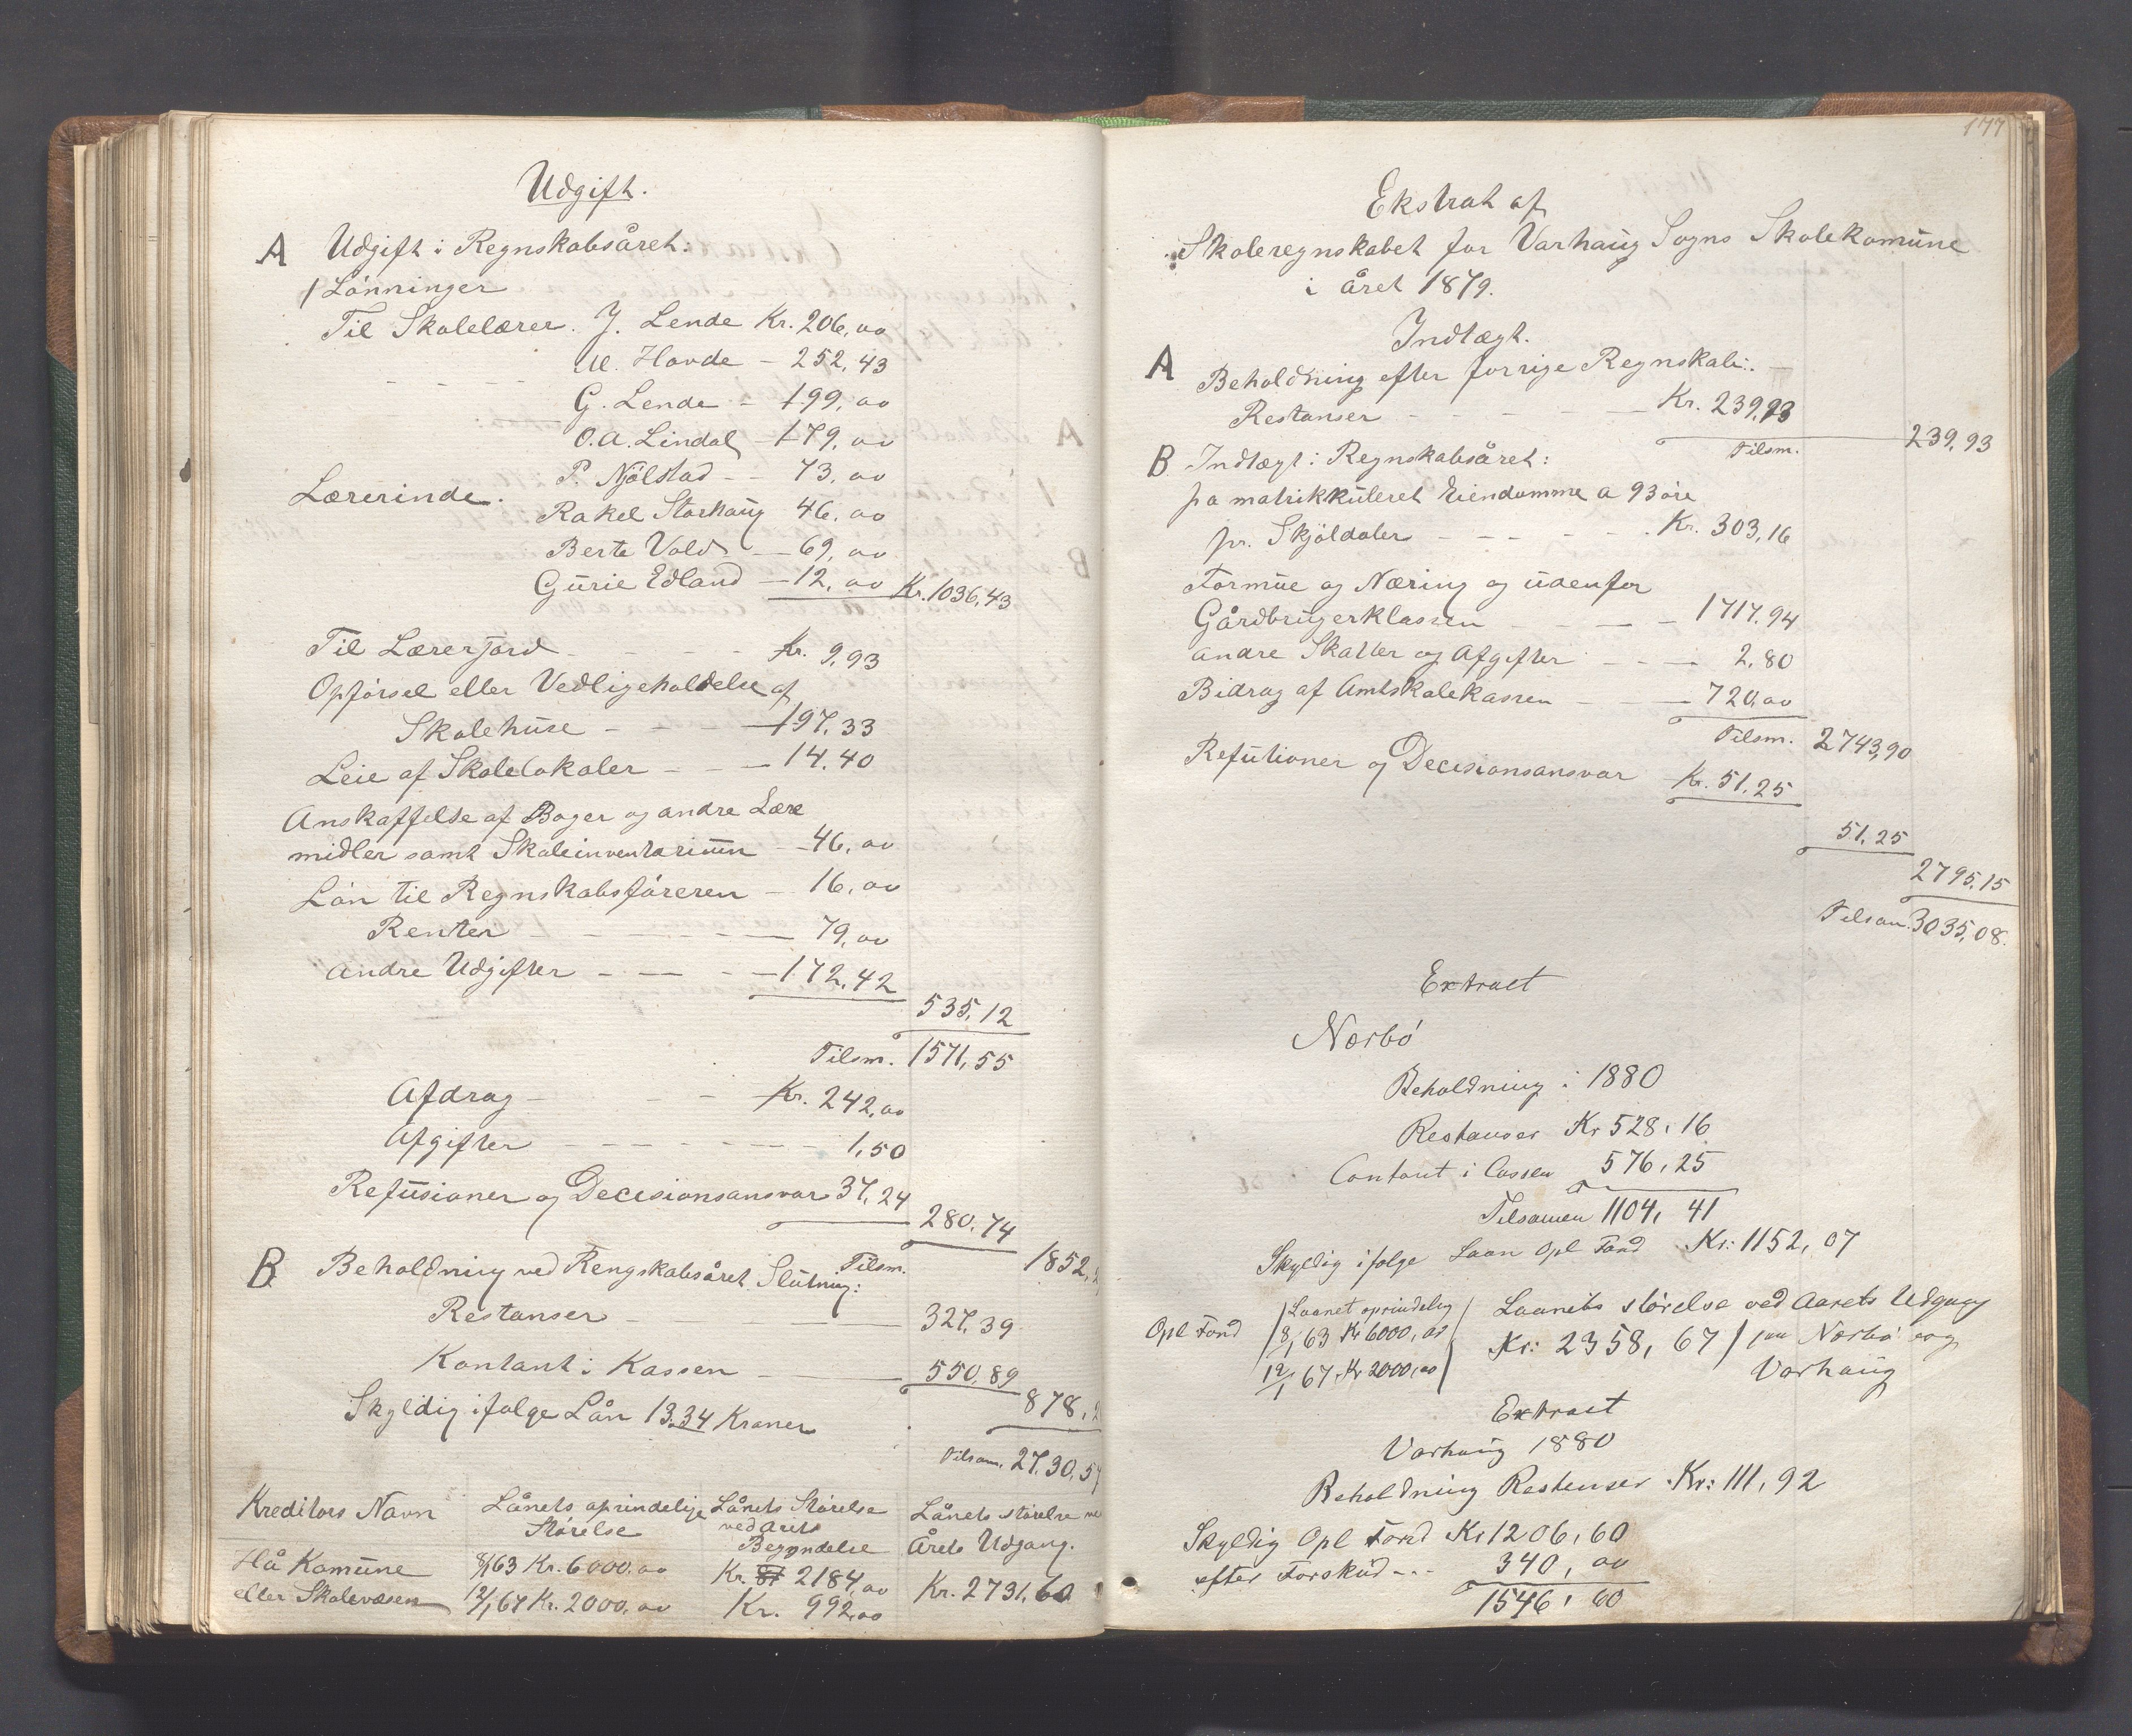 Udgift.
A Udgift i Regnskabsåret:
1 Lönninger
Til Skolelærer. J. Lende Kr. 206,00
- - - - M. Havde - 252,43
G. Lende - 199,00
O.A. Lindal - 179,00
P. Njölstad - - 73,00
Lærerinde. Rakel Storhaug 46,00
Berte Vold - - 69,00
Gurie Edland - 12,00 Kr. 1036,43
Til Lærerjord - - - - Kr. 9,93
Opförsel eller Vedligeholdelse af
Skolehuse - - - 197,33
Leie af Skolelokaler - - - 14.40
Anskaffelse af Bøger og andre Lære
midler samt Skoleinventarium - 46,00
Lön til Regnskabsföreren - 16,00
Renter - - - - - - 79,00
Andre Udgifter - - - - 172,42
535,12
Tilsm. 1571,55
Afdrag - - - Kr. 242,00
Afgifter - - - - - - 1,50
Refusioner og Decisionsansvar 37,24
280,74
Tilsm. 1852,
B Beholdning ved Rengskabsåret Slutning:
Restanser - - - 327,39
Kontant i Kassen - - 550,89
878,
Skyldig ifølge Lån 13.34 Kroner
Tilsam. 27.30,5
Kreditors Navn Lånets oprindelige Størelse Lånets Størelse ved årets Begyndelse Lånets størelse ve Årets Udgang.
Hå Komune 8/1 63 Kr. 6000,00 Kr. 2184,00 Kr. 2731,60
eller Skolevæsen 12/1 67 Kr. 2000,00 Kr. 992,00
177
Ekstrat af
Skoleregnskabet for Varhaug Sogns Skolekomune
i året 1879.
Indtægt.
A Beholdning efter forrige Regnskab:. -
Restanser - - - - - Kr. 239,93
Tilsm. 239,93
B Indtægt i Regnskabsåret:
pa matrikkuleret Eiendomme a 93 øre
pr. Skjöldaler - - - - - Kr. 303,16
Formue og Næring og udenfor
Gårdbrugerklassen - - - - 1717,94
andre Skatter og Afgifter - - - 2,80
Bidrag af Amtskolekassen - - - 720,00
Tilsm. 2743,90
Refutioner og Decisionsansvar Kr. 51,25
51,25
2795,15
Tilsam. 3035,08.
Extract
Nærbö
Beholdning i 1880
Restanser Kr 528,16
Contant i Cassen 576,25
Tilsamen 1104,41
Skyldig ifølge Laan Opl Fond Kr: 1152,07
Opl Fond Laanet oprindelig Laanets størelse ved Aarets Udgang
8/1 63 Kr 6000,00 Kr: 2358,67 / paa Nærbø og
12/1 67 Kr 2000,00 Varhaug
Extract
Varhaug 1880
Beholdning Restenser Kr: 111,92
Skyldig Opl Fond Kr 1206,60
efter Forskud - - - 340,00
1546,60